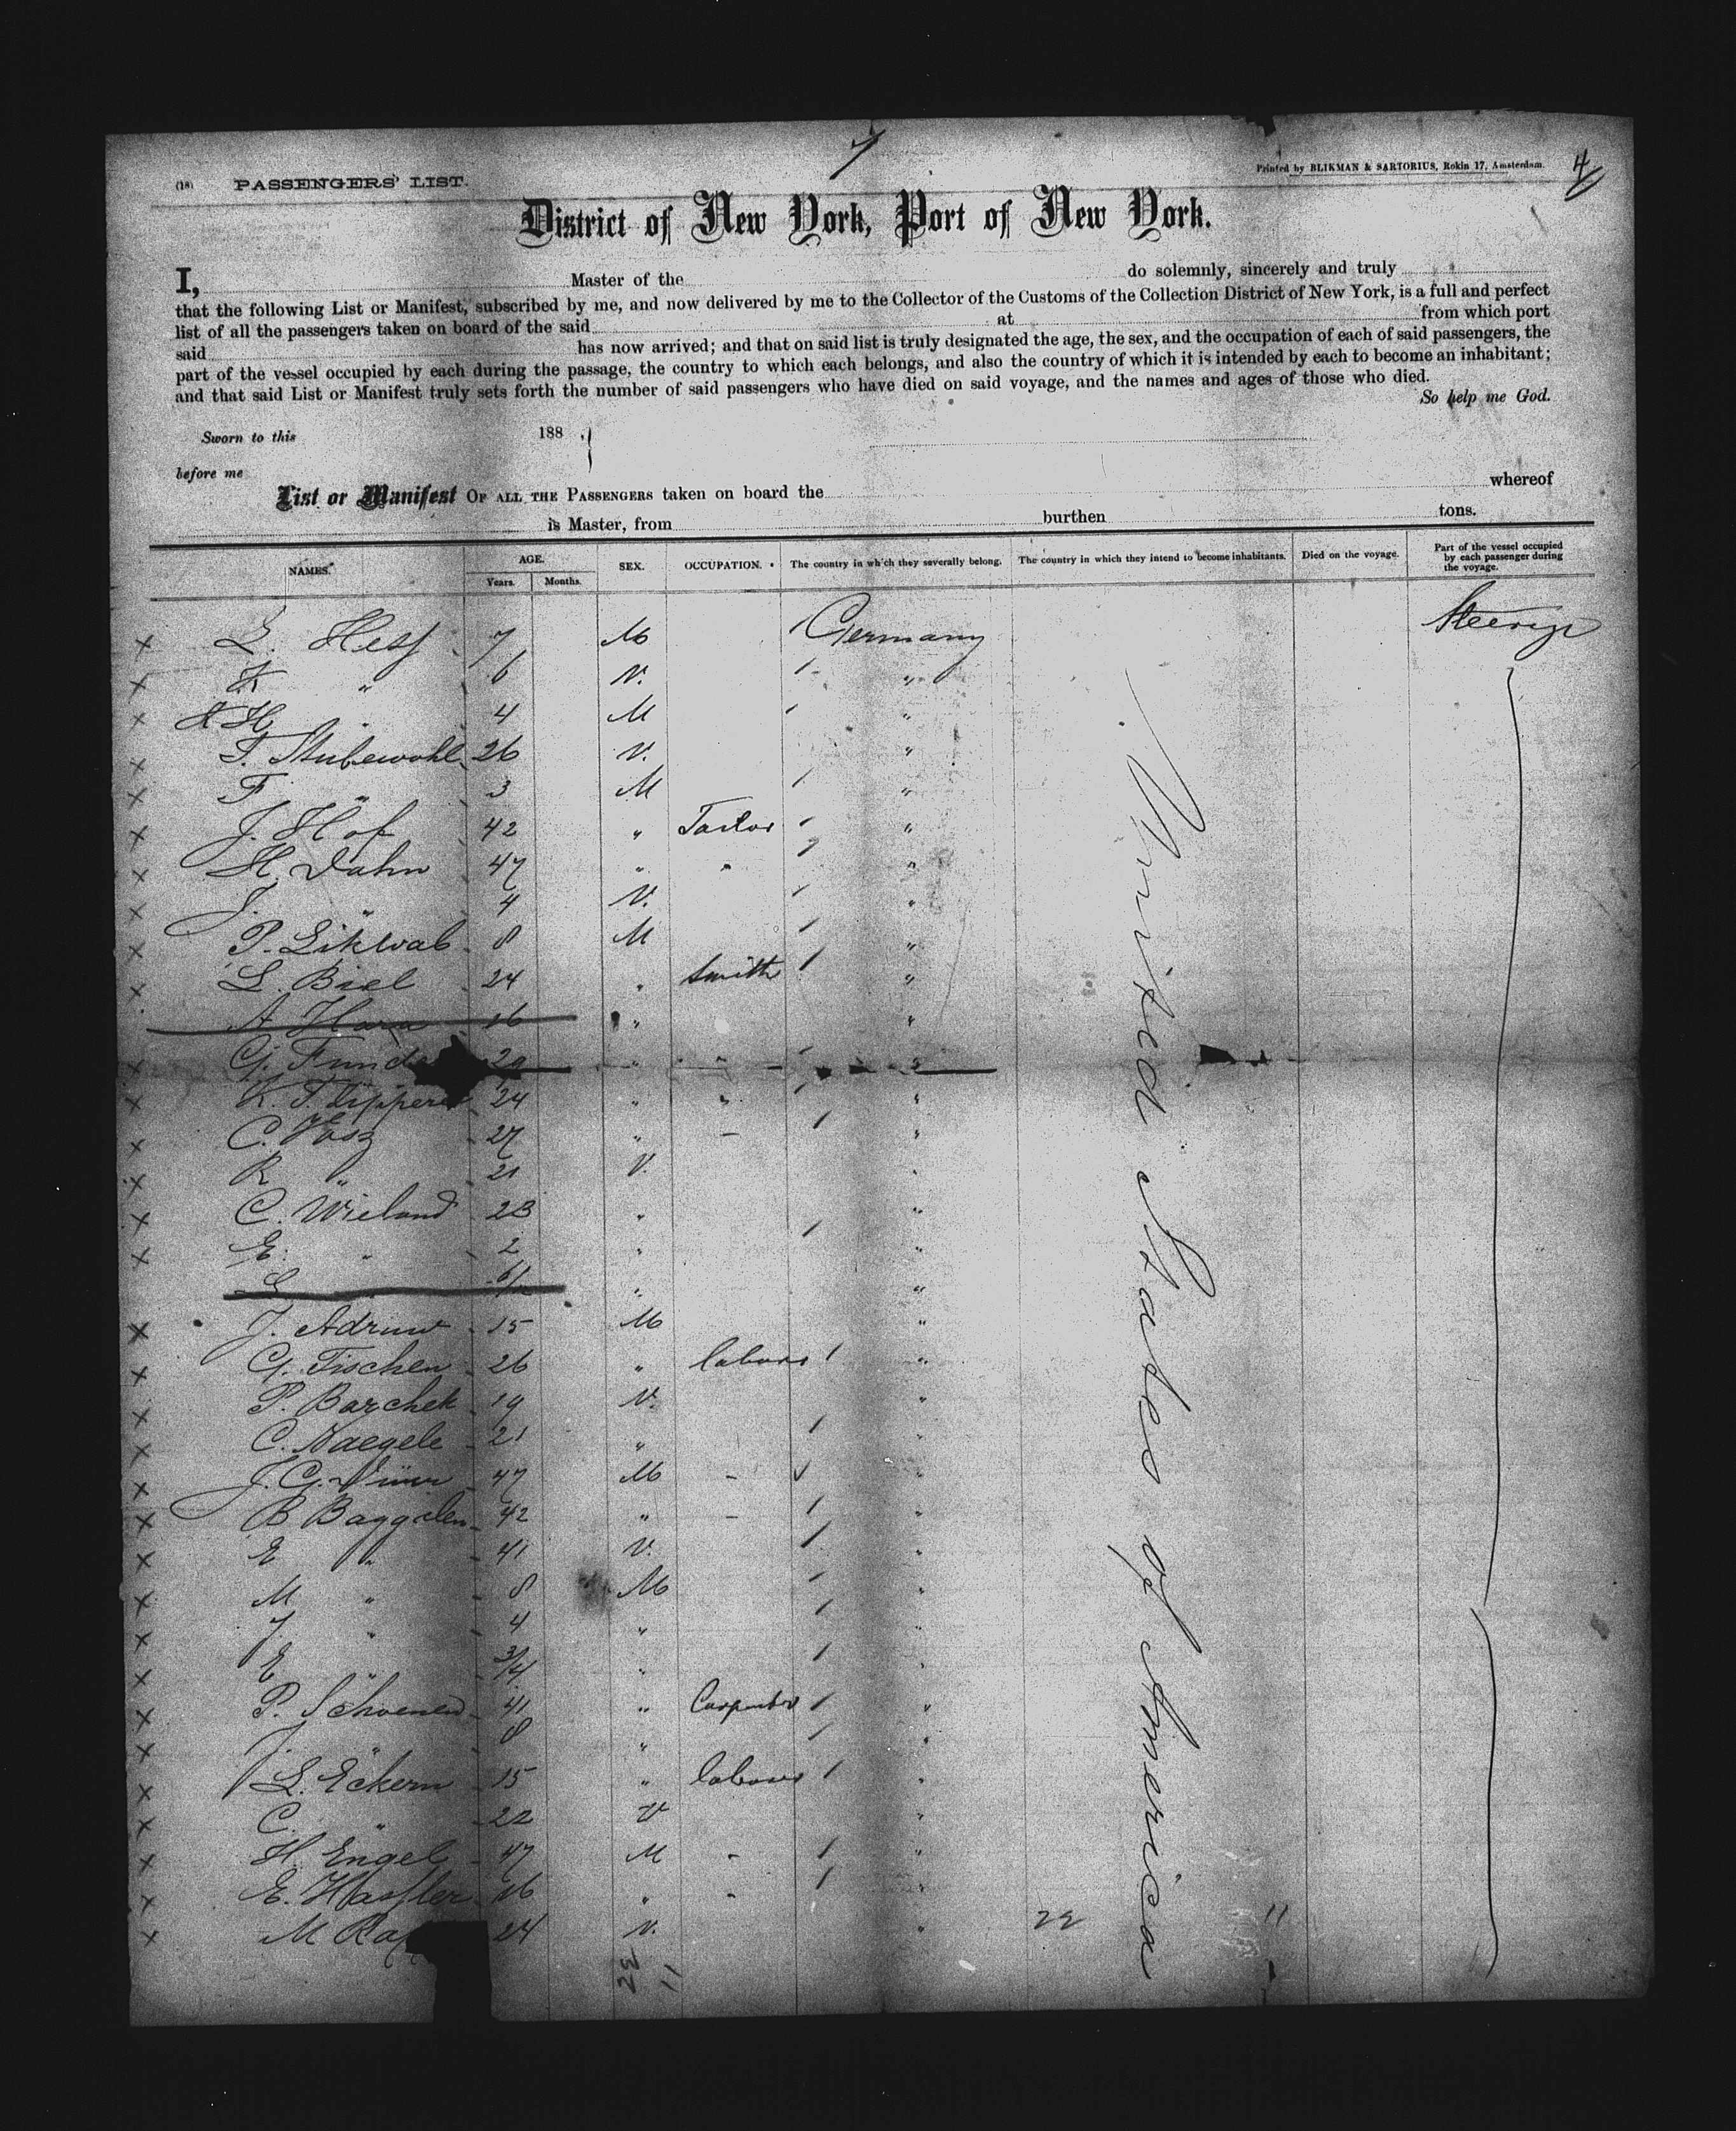 4
(18) PASSENGERS' LIST.
Printed by BLIKMAN & SARTORIUS, Rokin 17, Amsterdam.
District of New York, Port of New York.
I, Master of the do solemnly, sincerely and truly
that the following List or Manifest, subscribed by me, and now delivered by me to the Collector of the Customs of the Collection District of New York, is a full and perfect
list of all the passengers taken on board of the said at from which port
said has now arrived; and that on said list is truly designated the age, the sex, and the occupation of each of said passengers, the
part of the vessel occupied by each during the passage, the country to which each belongs, and also the country of which it is intended by each to become an inhabitant;
and that said List or Manifest truly sets forth the number of said passengers who have died on said voyage, and the names and ages of those who died.
So help me God.
Sworn to this 188 .
before me
List or Manifest OF ALL THE PASSENGERS taken on board the whereof
is Master, from burthen tons.
NAMES. AGE. Years. Months. SEX. OCCUPATION. The country in which they severally belong. The country in which they intend to become inhabitants. Died on the voyage. Part of the vessel occupied by each passenger during the voyage.
L. Hess 7 M Germany Steerage
K " 6 V. "
H 4 M "
F. 26 V. "
F " 3 M "
J. Hof 42 " Tailor "
H. Dahn 47 " " "
J. " 4 V. "
P. Likwab 8 M "
L. Biel 24 " Smith "
A 16 " "
G. " "
24 " " "
C. 27 " - "
R " 21 V. "
C. Wieland 23 " "
E. " 2 " "
" "
J. 15 M "
G. Fischen 26 " labour "
P. Barchek 19 V. "
C. Naegele 21 " "
J. G. 47 M - "
B Baggelen 42 " - "
E " 41 V. "
M " 8 M "
J " 4 " "
E " 3/4 " "
P. Schoenen 41 " Carpenter "
J. " 8 " "
L. Eckern 15 " labour "
C. " 22 V "
H. Engel 47 M - "
E. Hassler 16 " - "
M 24 V. "
United States of America